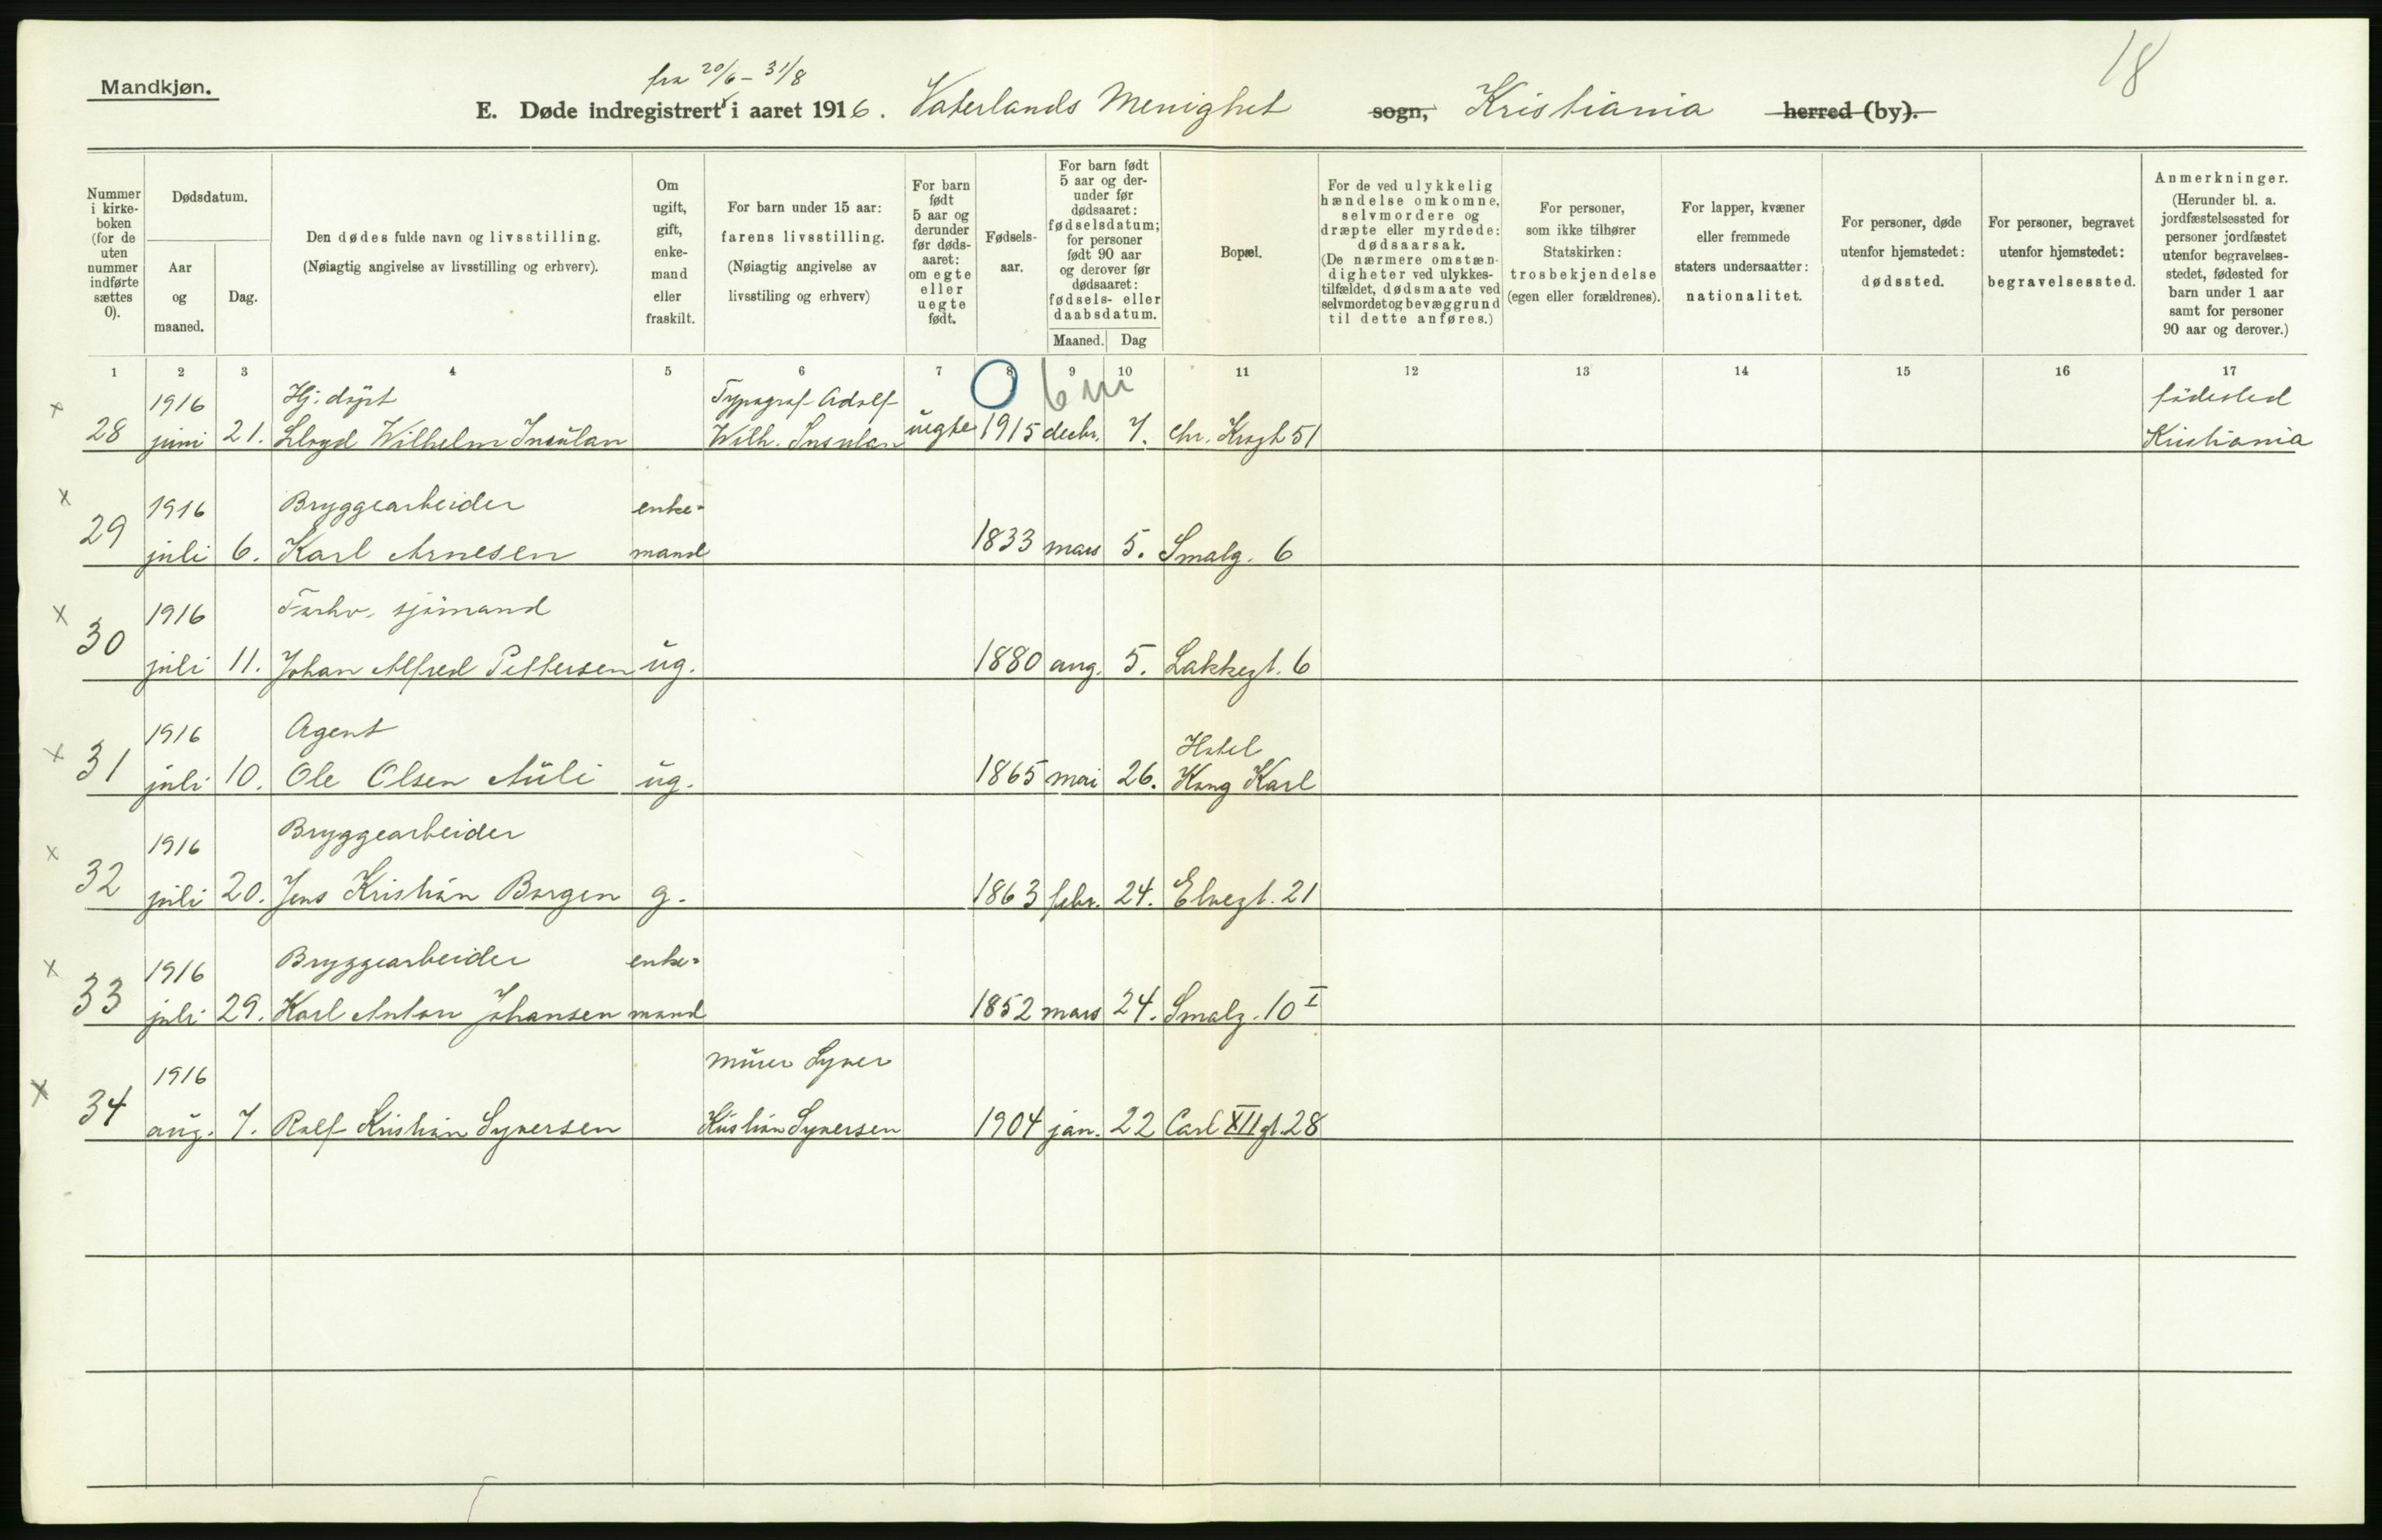 18
Mandkjøn.
fra 20/6 - 31/8
E. Døde indregistrert i aaret 1916. Vaterlands Menighet sogn, Kristiania herred (by).
Nummer i kirkeboken (for de uten nummer indførte sættes 0).
Dødsdatum.
Aar og maaned.
Dag.
Den dødes fulde navn og livsstilling.
(Nøiagtig angivelse av livsstilling og erhverv).
Om ugift, gift, enkemand eller fraskilt.
For barn under 15 aar:
farens livsstilling.
(Nøiagtig angivelse av livsstiling og erhverv)
For barn født 5 aar og derunder før dødsaaret: om egte eller uegte født.
Fødselsaar.
For barn født 5 aar og derunder før dødsaaret: fødselsdatum; for personer født 90 aar og derover før dødsaaret: fødsels- eller daabsdatum.
Maaned.
Dag
Bopæl.
For de ved ulykkelig hændelse omkomne, selvmordere og dræpte eller myrdede: dødsaarsak.
(De nærmere omstændigheter ved ulykkestilfældet, dødsmaate ved selvmordet og bevæggrund til dette anføres.)
For personer, som ikke tilhører Statskirken: trosbekjendelse (egen eller forældrenes).
For lapper, kvæner eller fremmede staters undersaatter: nationalitet.
For personer, døde utenfor hjemstedet: dødssted.
For personer, begravet utenfor hjemstedet: begravelsessted.
Anmerkninger.
(Herunder bl. a. jordfæstelsessted for personer jordfæstet utenfor begravelsesstedet, fødested for barn under 1 aar samt for personer 90 aar og derover.)
1 2 3 4 5 6 7 8 9 10 11 12 13 14 15 16 17
0 6 m
x 1916 Hj. døpt Typograf Adolf fødested
28 juni 21. Lloyd Wilhelm Insulan Wilh. Insulan uegte 1915 decbr. 7. Chr. Krogh 51 Kristiania
x 1916 Bryggearbeider enke-
29 juli 6. Karl Arnesen mand 1833 mars 5. Smalg. 6
x 1916 Forhv. sjömand
30 juli 11. Johan Alfred Pettersen ug. 1880 aug. 5. Lakkegt. 6
1916 Agent Hotel
x 31 juli 10. Ole Olsen Auli ug. 1865 mai 26. Kong Karl
x 1916 Bryggearbeider
32 juli 20. Jens Kristian Borgen g. 1863 febr. 24. Elvegt. 21
x 1916 Bryggearbeider enke-
33 juli 29. Karl Anton Johansen mand 1852 mars 24. Smalg. 10 I
x 1916 Murer Syver
34 aug. 7. Rolf Kristian Syversen Kristian Syversen 1904 jan. 22 Carl XII gt. 28